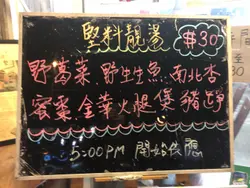 堅料靚湯 $30
野葛菜、野生生魚、南北杏
蜜棗、金華火腿煲豬𦟌
5:00PM 開始供應